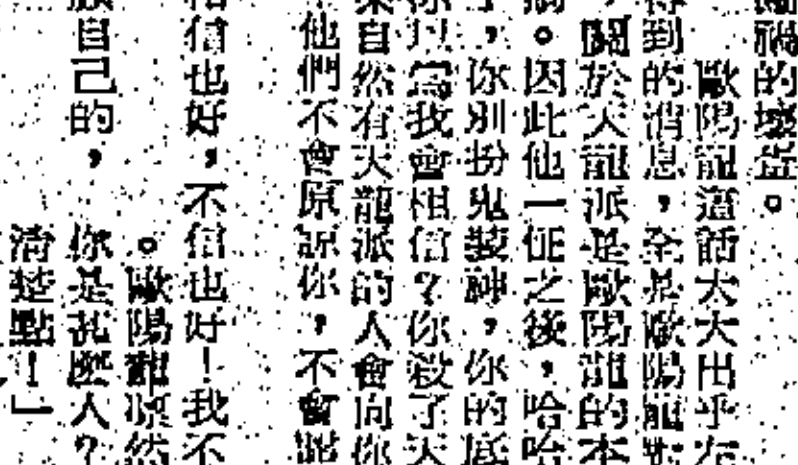 禍的壞蛋。
歐陽龍這話大大出乎左
得到的消息，全是歐陽龍對
，關於天龍派是歐陽龍的本
。因此他一怔之後，哈哈
，你別扮鬼裝神，你的底
你以爲我會相信？你殺了天
來自然有天龍派的人會向你
他們不會原諒你，不會
信也好，不信也好！我不
。歐陽龍然
自己的，你是甚麼人？
清楚點！」